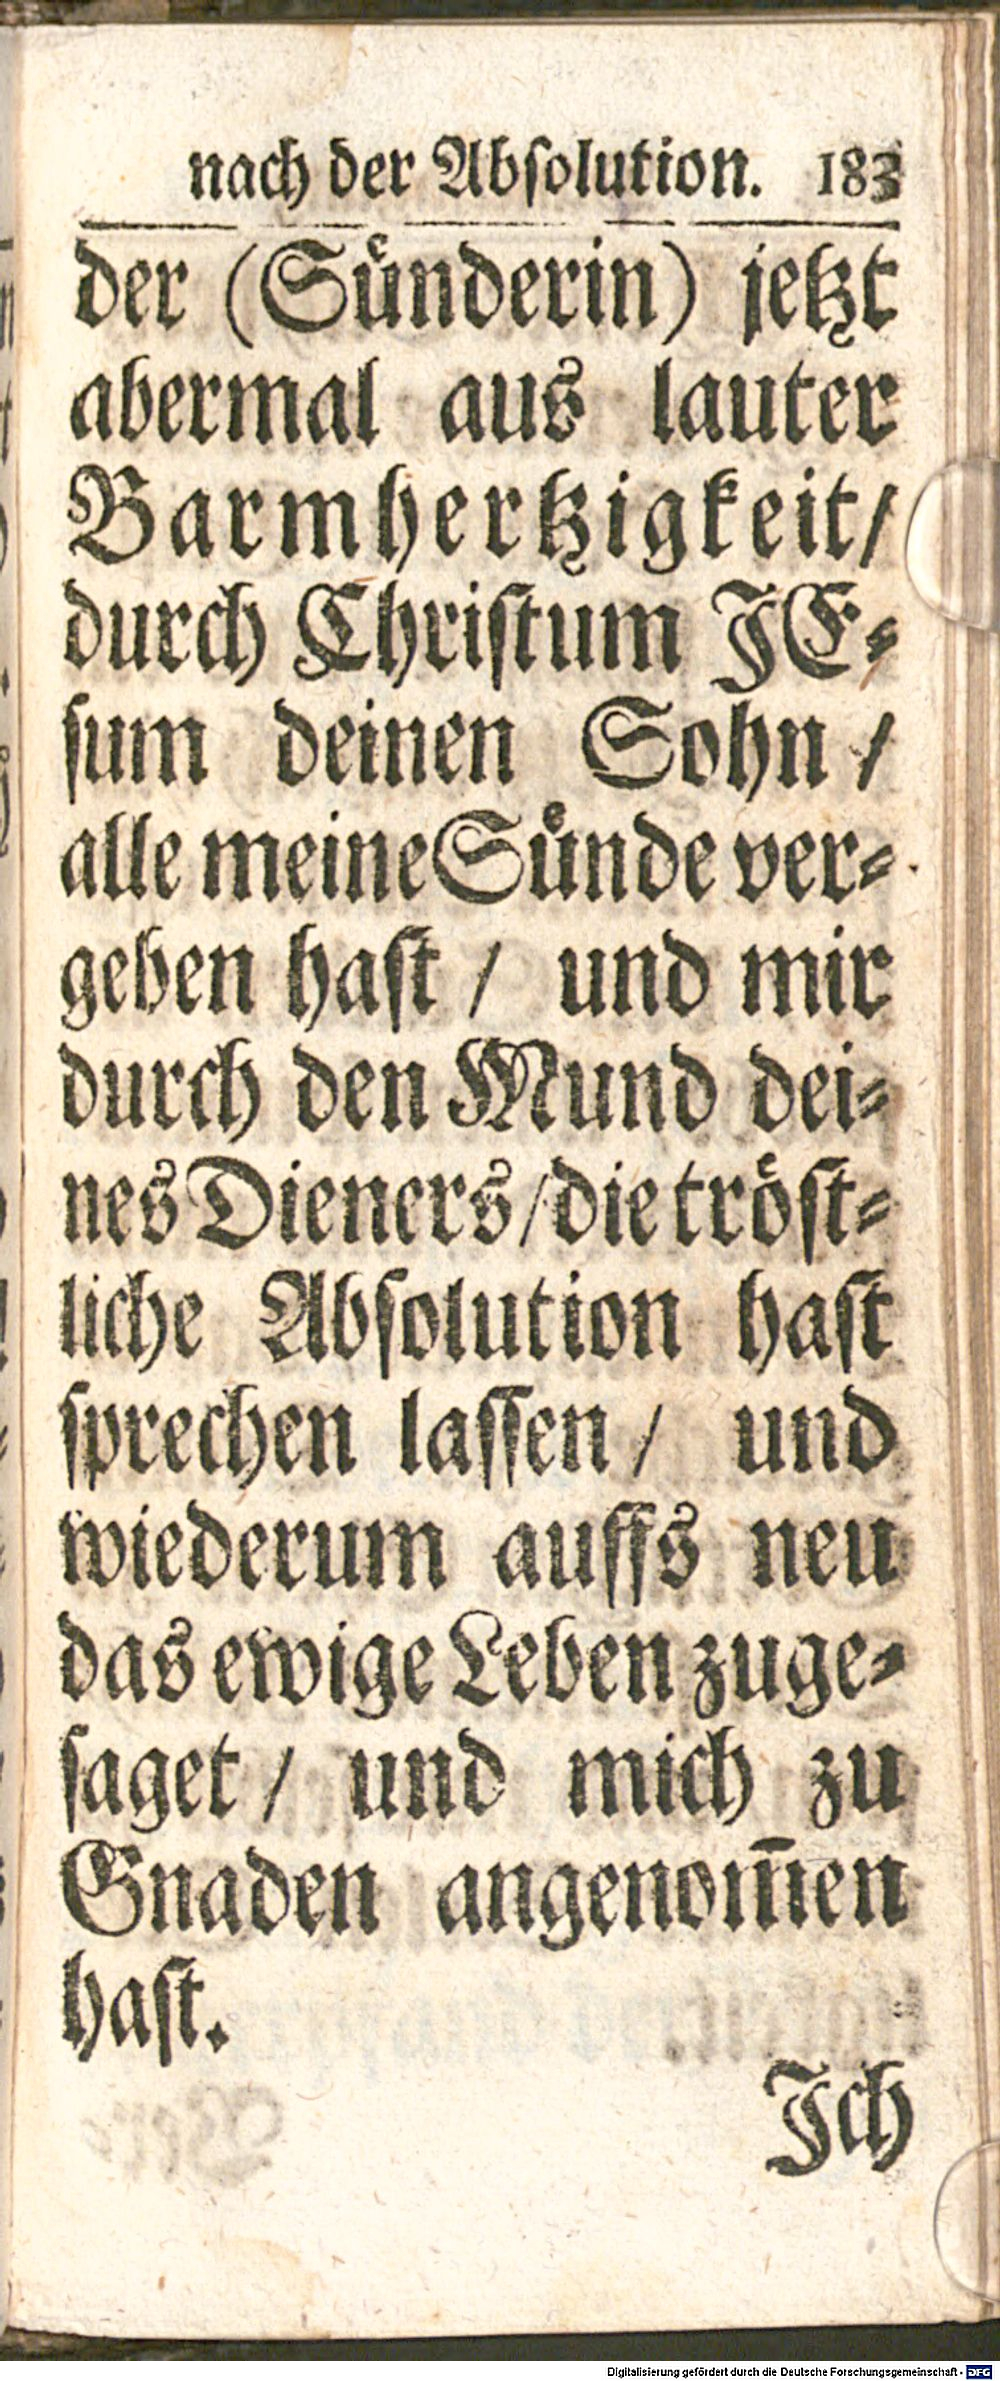 nach der Abſolution. 183
der (Suͤnderin) jetzt
abermal aus lauter
Barmhertzigkeit/
durch Chriſtum JE⸗
ſum deinen Sohn /
alle meine Suͤnde ver⸗
geben haſt / und mir
durch den Mund dei⸗
nes Dieners/die troͤſt⸗
liche Abſolution haſt
ſprechen laſſen / und
wiederum auffs neu
das ewige Leben zuge⸗
ſaget / und mich zu
Gnaden angenom̃en
haſt.
Jch
Digitalisierung gefördert durch die Deutsche Forschungsgemeinschaft - DFG